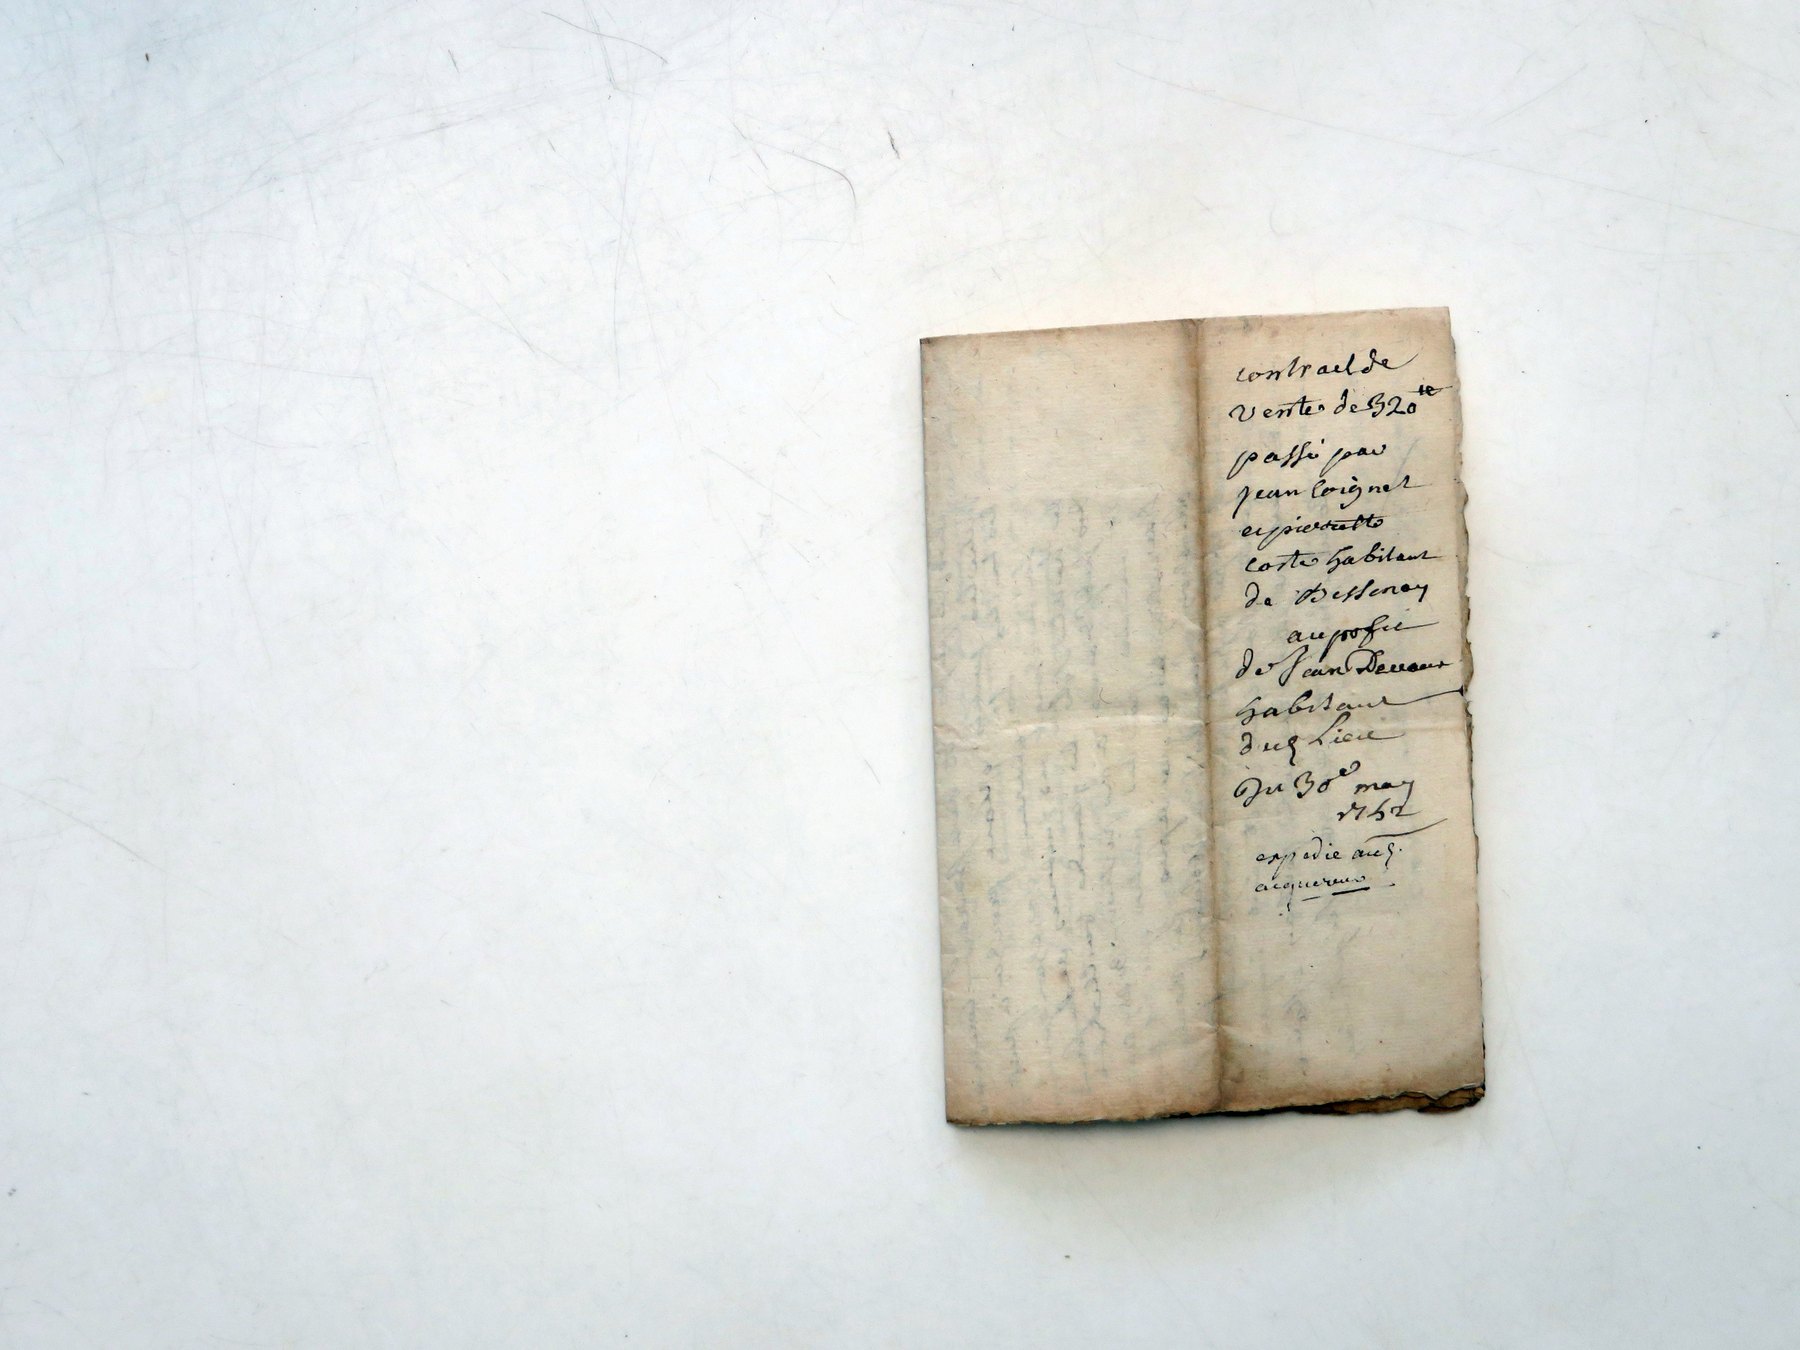 contract de
vente de 320 ₶
passé par
jean Coignet
et pierrette
coste habitant
de Bessenay
au profit
de Jean
habitant
dud lieu
Du 30e may
1762
expedie aud.
acquereur